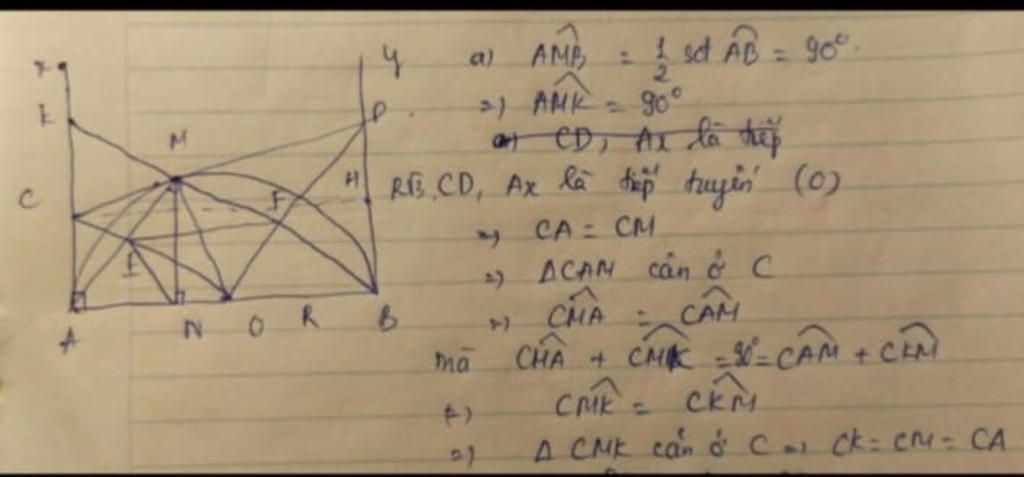 x
y
k
D
M
C
H
F
I
A N O R B
a) AMB = 1/2 sđ AB = 90°
=) AMK = 90°
CD, Ax là tiếp
CD, Ax là tiếp tuyến (O)
=) CA = CM
=) ΔCAM cân ở C
=) CMA = CAM
mà CMA + CMK = 90° = CAM + CKM
(=) CMK = CKM
=) Δ CMK cân ở C => CK = CM = CA